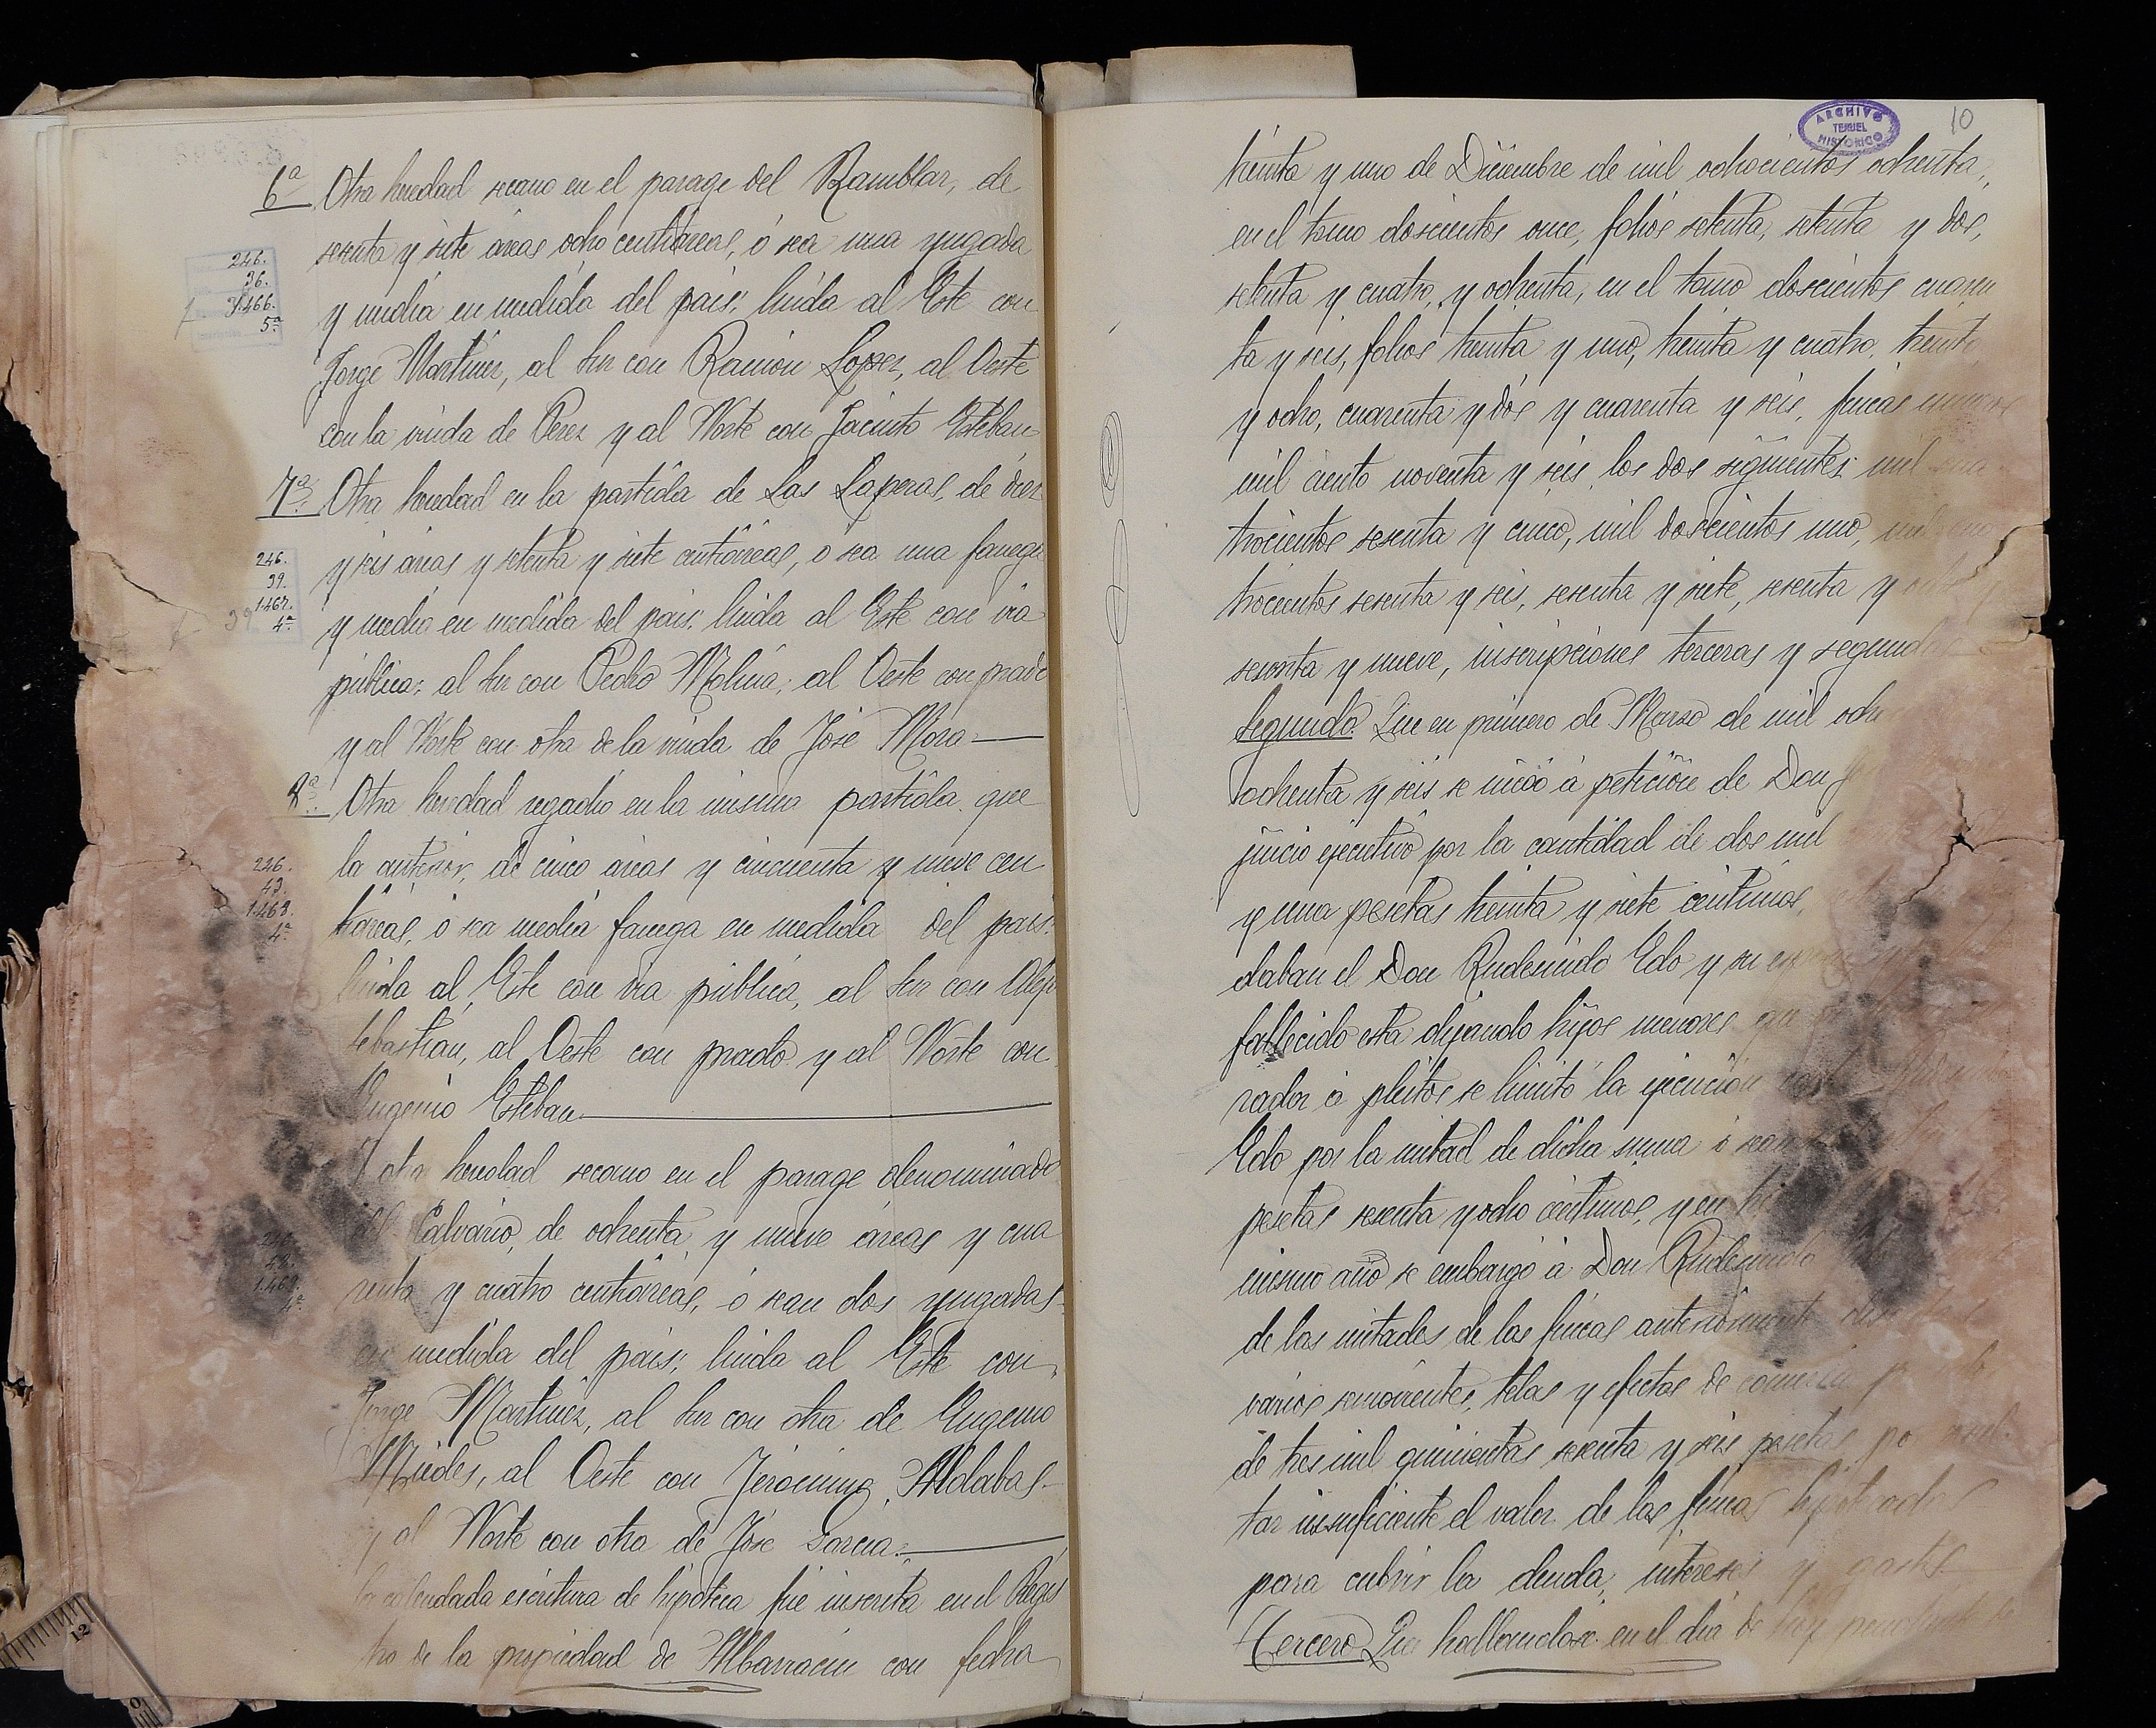 6ª Otra heredad secano en el parage del Ramblar, de
sesenta y siete áreas ocho centiáreas, ó sea una yugada
246.
36.
1466.
5ª
y media en medida del pais; linda al Este con
Jorge Martinez, al Sur con Ramón Lopez, al Oeste
con la viuda de Perez y al Norte con Jacinto Esteban
7ª Otra heredad en la partida de Las Laperas, de diez
y seis áreas y setenta y siete centiáreas, ó sea una fanega
246.
39.
1467.
4ª
39
y media en medida del pais; linda al Este con via
pública; al Sur con Pedro Molina; al Oeste con prado
y al Norte con otra de la viuda de José Mora
8ª Otra heredad regadio en la misma partida que
la anterior, de cinco áreas y cincuenta y nueve cen
246.
43.
1468.
4ª
tiáreas, ó sea media fanega en medida del pais:
linda al Este con via pública, al Sur con Alejo
Sebastián, al Oeste con prado y al Norte con
Eugenio Esteban
Y otra heredad secano en el parage denominado
del Calvario, de ochenta y nueve áreas y cua
1.469.
4ª
renta y cuatro centiáreas, ó sean dos yugadas
en medida del pais; linda al Este con
Jorge Martinez, al Sur con otra de Eugenio
Miedes, al Oeste con Jerónimo Aldabas
y al Norte con otra de José Garcia
la calendada escritura de hipoteca fué inscrita en el Regis
tro de la propiedad de Albarracin con fecha
ARCHIVO
TERUEL
HISTORICO
10
treinta y uno de Diciembre de mil ochocientos ochenta,
en el tomo doscientos once, folios setenta, setenta y dos,
setenta y cuatro, y ochenta, en el tomo doscientos cuaren
ta y seis, folios treinta y uno, treinta y cuatro, treinta
y ocho, cuarenta y dos y cuarenta y seis, fincas
mil ciento noventa y seis, los dos siguientes, mil
trocientos sesenta y cinco, mil doscientos uno, mil
trocientos sesenta y seis, sesenta y siete, sesenta y
sesenta y nueve, inscripciones terceras y segundas
Segundo. Que en primero de Marzo de mil
ochenta y seis se inició á petición de Don
juicio ejecutivo por la cantidad de dos mil
y una pesetas treinta y siete céntimos,
daban el Don Rudesindo Edo y su
fallecido esta dejando hijos menores
rador á pleitos se limitó la ejecución
Edo por la mitad de dicha suma ó sean
pesetas sesenta y ocho céntimos, y en
mismo año se embargó á Don Rudesindo
de las mitades de las fincas anteriormente
varios semovientes, telas y efectos de comercio
de tres mil quinientas sesenta y seis pesetas
tar insuficiente el valor de las fincas hipotecadas
para cubrir la deuda, intereses y gastos
Tercero. Que hallandose en el dia de hoy pendiente